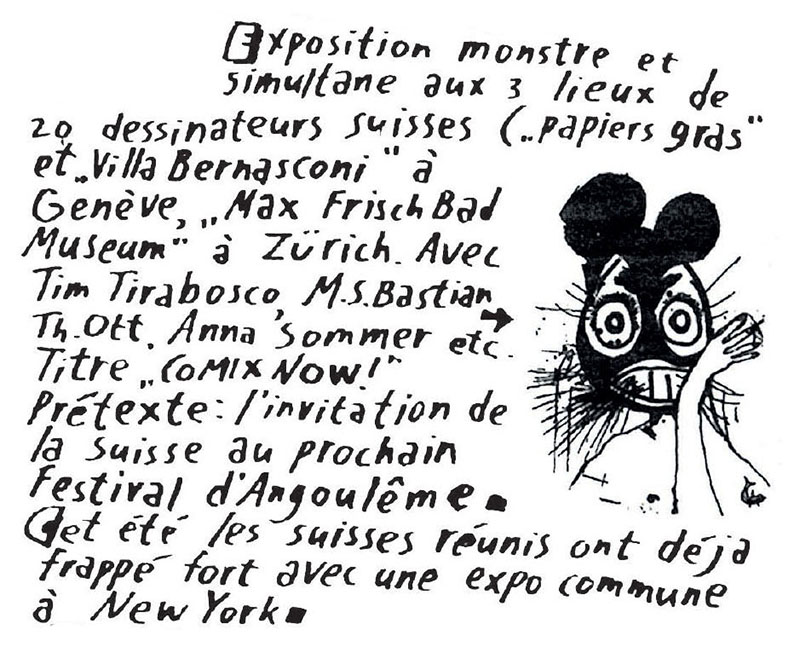 Exposition monstre et
simultane aux 3 lieux de
20 dessinateurs suisses („papiers gras“
et „Villa Bernasconi“ à
Genève, „Max Frisch Bad
Museum“ à Zürich. Avec
Tim Tirabosco, M.S. Bastian
Th. Ott, Anna Sommer etc.
Titre „COMIX NOW!“
Prétexte: l'invitation de
la Suisse au prochain
Festival d'Angoulême.
Cet été les suisses réunis ont déjà
frappé fort avec une expo commune
à New York.